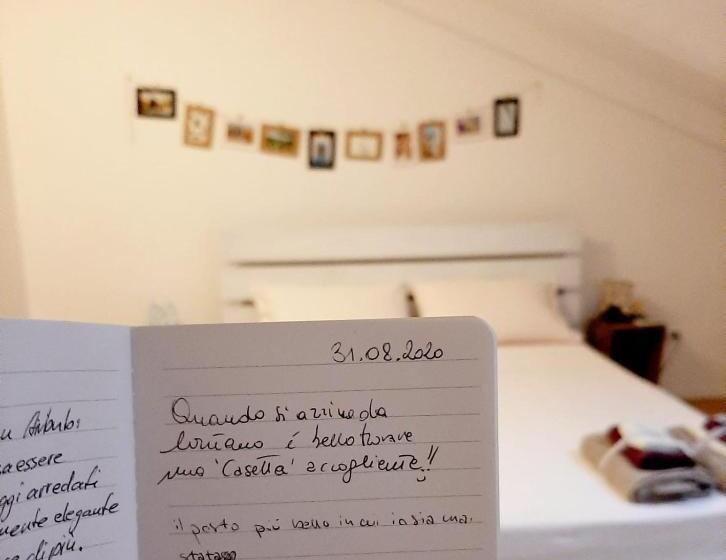 u Airbnb:
essere
ggi arredati
mente elegante
di più.
31.08.2020
Quando si arriva da
lontano é bello trovare
una 'Casetta' accogliente!!
il posto più bello in cui io sia mai
stata